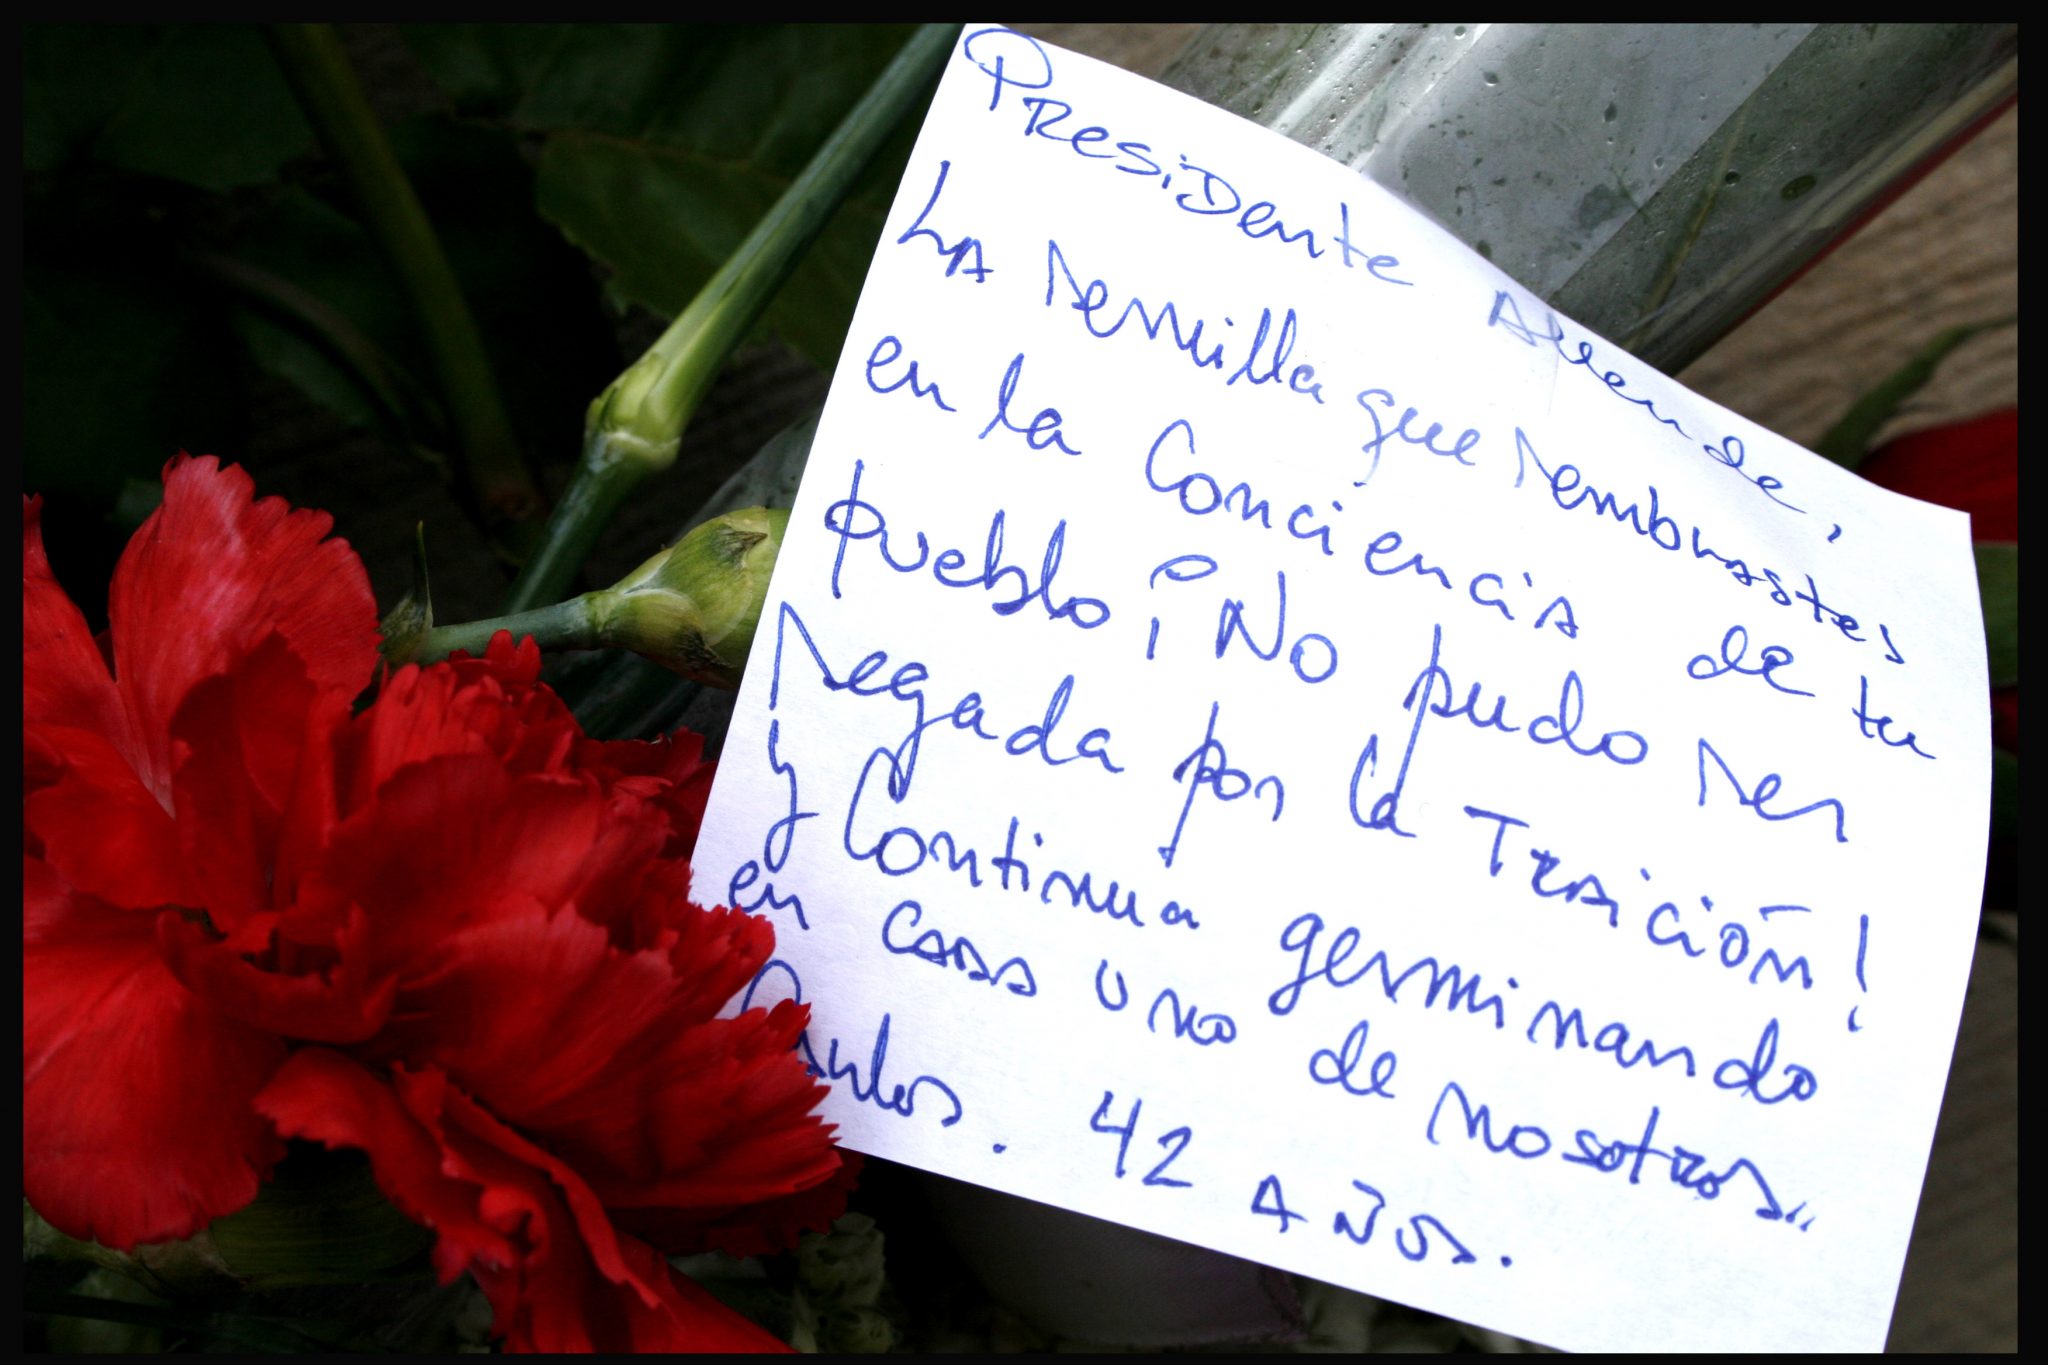 Presidente Allende,
La semilla que sembrastes
en la conciencia de tu
pueblo ¡No pudo ser
segada por la Traición!
y continua germinando
en cada uno de nosotros..
42 años.